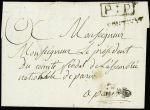 P.P.
Monsieur
Monsieur le président
du comité féodal de l'assemblée
nationale de paris
a paris